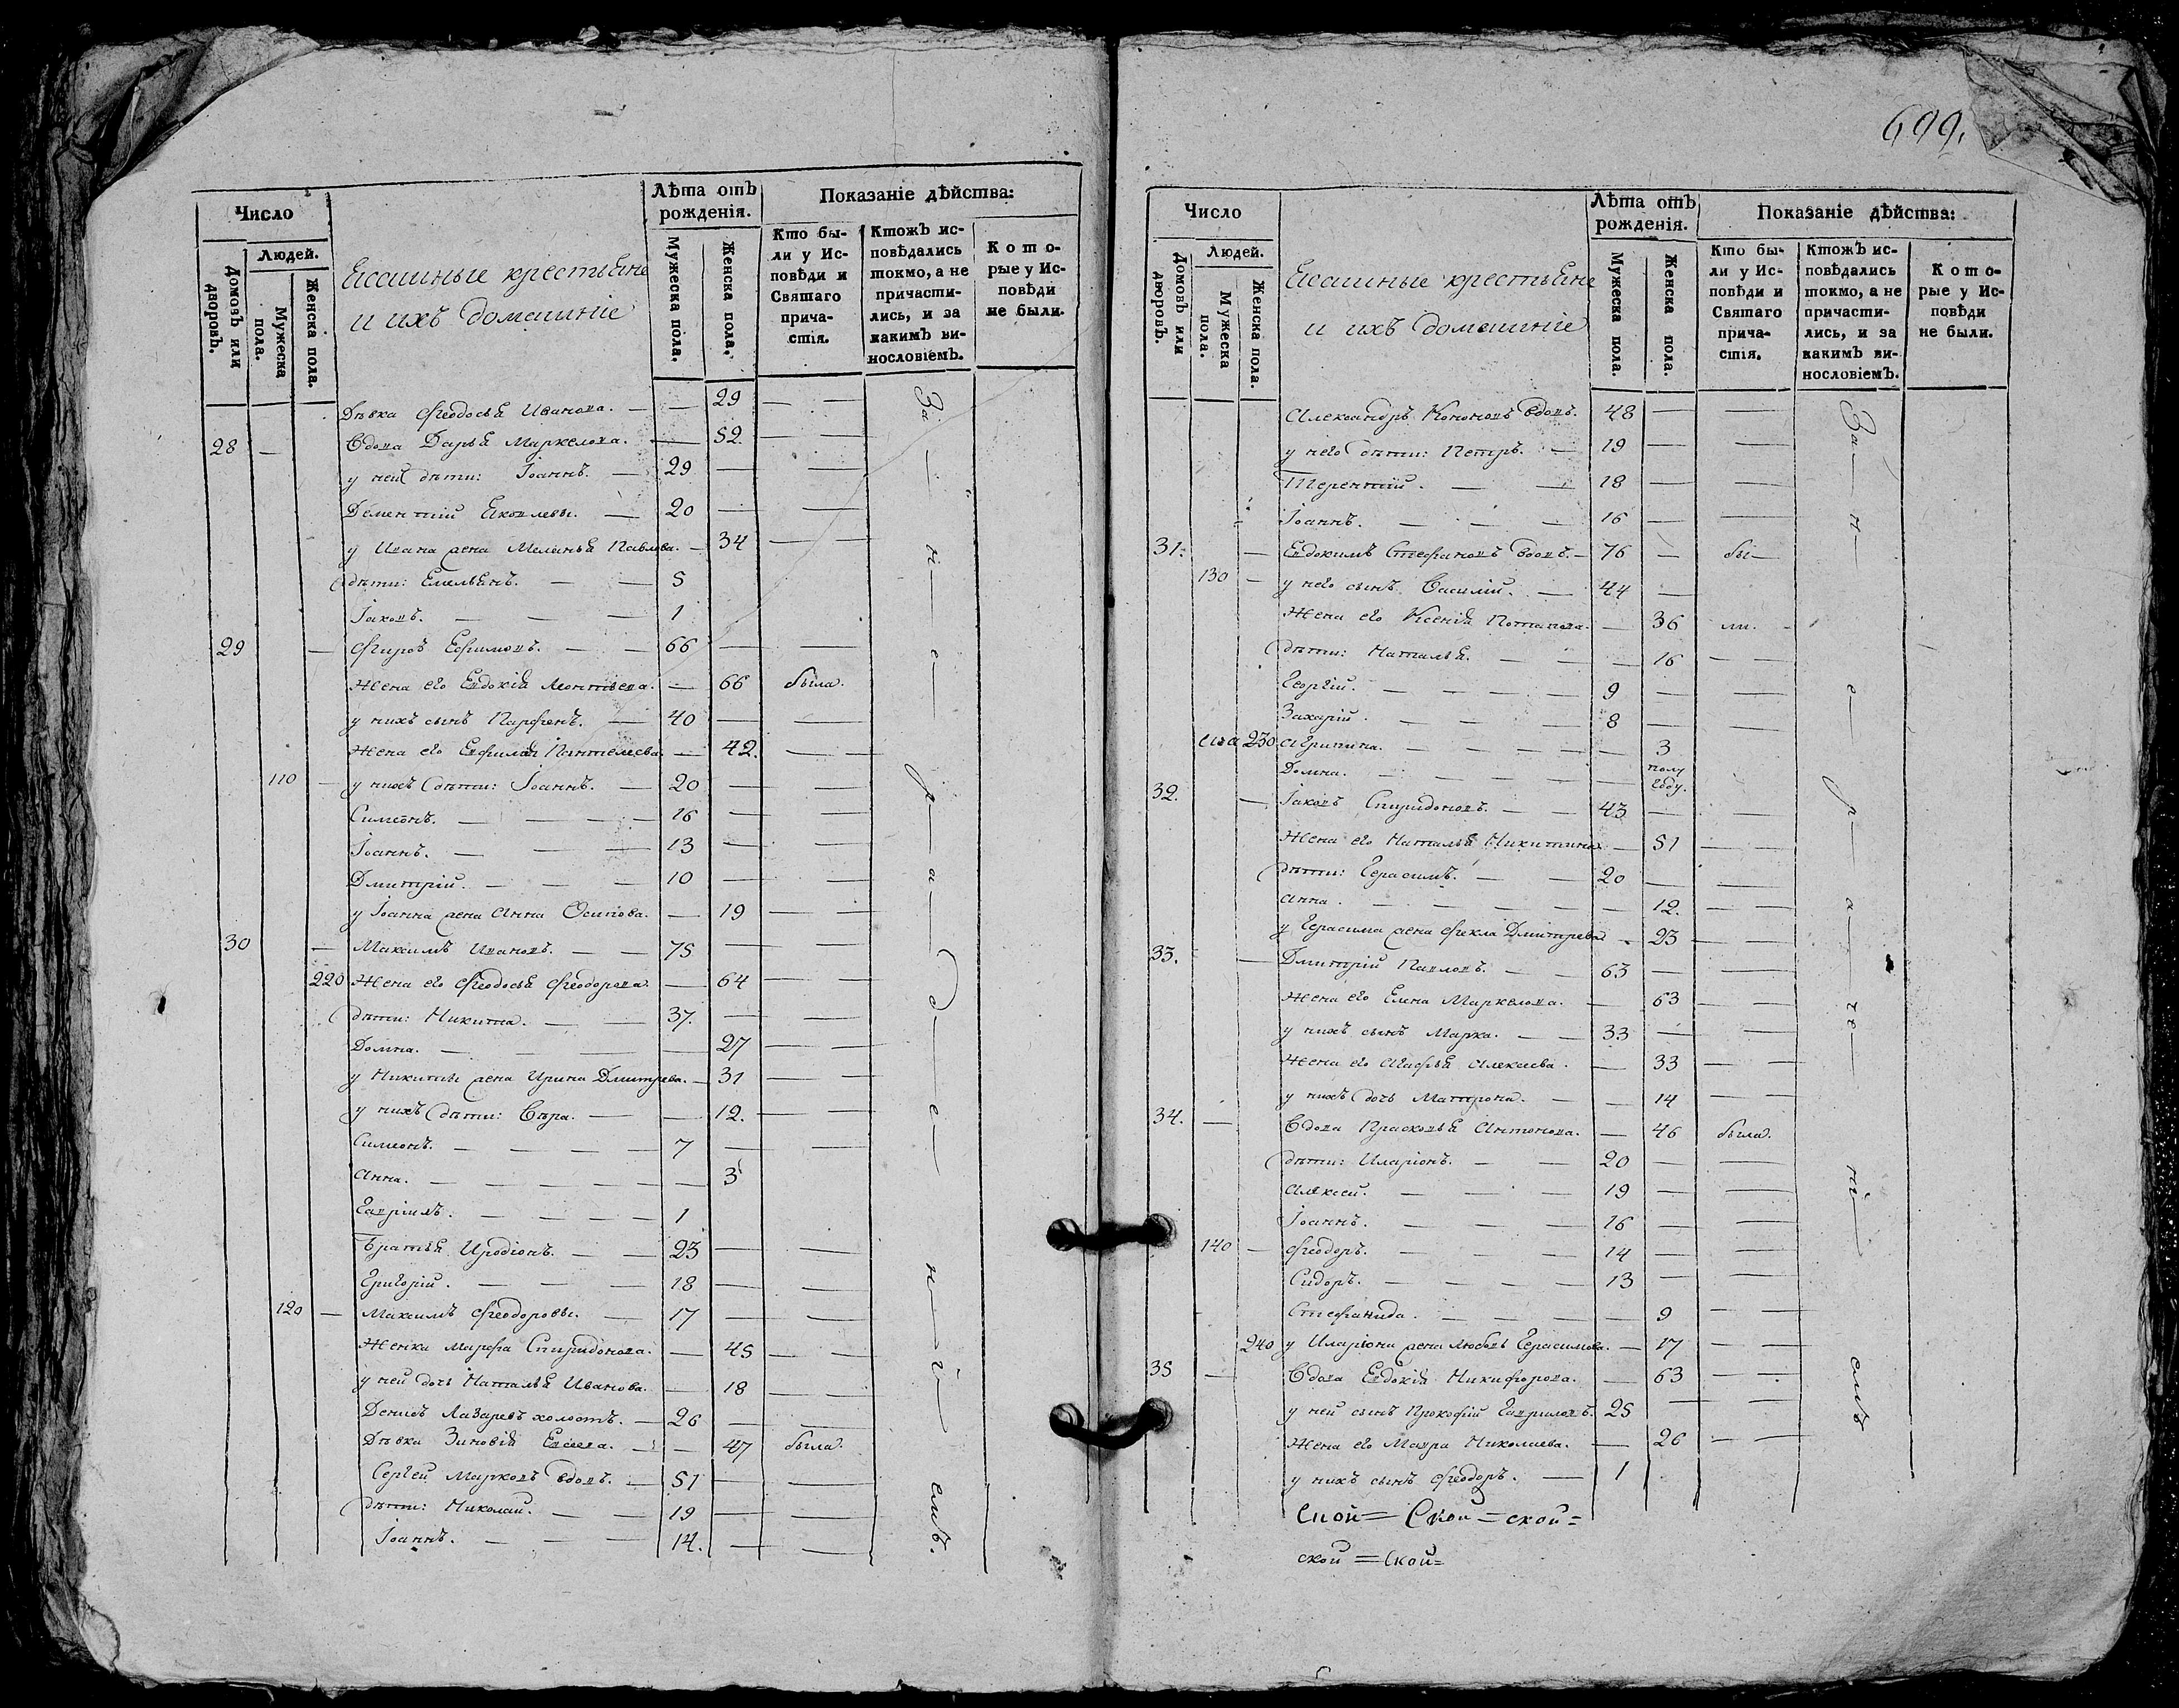 Число
Людей.
Домовъ или дворовъ.
Мужеска пола.
Женска пола.
Ясашные крестьяне
и ихъ домашніе
Лѣта отъ
рожденія.
Мужеска пола.
Женска пола.
Показаніе дѣйства:
Кто бы-
ли у Ис-
повѣди и
Святаго
прича-
стія.
Ктожъ ис-
повѣдались
токмо, а не
причасти-
лись, и за
какимъ ви-
нословіемъ.
Кото-
рые у Ис-
повѣди
не были.
Дѣвка Феодосья Иванова. — — 29 — —
28 — Вдова Дарья Маркелова. — 52 — —
у ней дѣти: Іоаннъ. — 29 — —
Дементій Яковлевы. — 20 — —
у Ивана жена Меланья Павлова. — 34 — —
дѣти: Емельянъ. — — 5
Іаковъ. — — — 1
29 — Фиръ Ефимовъ. — — 66 — —
Жена его Евдокія Леонтьева. — 66 была.
у нихъ сынъ Парфенъ. — 40 — —
Жена его Евфимія Пантелеева. — 42. — —
110 — у нихъ дѣти: Іоаннъ. — 20 — —
Симеонъ. — — — — 16 — —
Іоаннъ. — — — 13 — —
Дмитрій. — — — 10 — —
у Іоанна жена Анна Осипова. — 19 — —
30 — Максимъ Ивановъ. — — 75 — —
220 Жена его Феодосья Феодорова. — 64 — —
дѣти: Никита. — — 37. — —
Домна. — — — — 27 — —
у Никиты жена Ирина Дмитрева. — 31 — —
у нихъ дѣти: Вѣра. — — 12. — —
Симеонъ. — — — — 7 — —
Анна. — — — — — — 3
Гавріилъ. — — — — 1
Братья Иродіонъ. — — 23 — —
Григорій. — — — 18 — —
120 — Максимъ Феодоровы. — 17 — —
Женка Марфа Спиридонова. — 45 — —
у ней дочь Наталья Иванова. — 18 — —
Денисъ Лазаревъ холостъ. — 26 — —
Дѣвка Зиновія Евсеева. — — 47 была.
Сергей Марковъ вдовъ. — 51 — —
дѣти: Николай. — — 19 — —
Іоаннъ. — — — 14. — —
За — не — ра — де — ні — емъ.
699.
Число
Людей.
Домовъ или дворовъ.
Мужеска пола.
Женска пола.
Ясашные крестьяне
и ихъ домашніе
Лѣта отъ
рожденія.
Мужеска пола.
Женска пола.
Показаніе дѣйства:
Кто бы-
ли у Ис-
повѣди и
Святаго
прича-
стія.
Ктожъ ис-
повѣдались
токмо, а не
причасти-
лись, и за
какимъ ви-
нословіемъ.
Кото-
рые у Ис-
повѣди
не были.
Александръ Кононовъ вдовъ. 48 — —
у него дѣти: Петръ. — 19 — —
Терентій. — — 18 — —
Іоаннъ. — — — 16 — —
31. — Евдокимъ Стефановъ вдовъ. — 76 — бы —
130 — у него сынъ Василій. — 44 —
Жена его Ксенія Потапова. — 36 ли.
дѣти: Наталья. — — — 16 — —
Георгій. — — — — 9 — —
Захарій. — — — — 8 — —
230 Агрипина. — — — — — 3
Домна. — — — — — полу
году.
32. — Іаковъ Спиридоновъ. — — 43 — —
Жена его Наталья Никитина. — 51 — —
дѣти: Герасимъ. — — 20 — —
Анна. — — — — — 12. — —
у Герасима жена Фекла Дмитрева. — 23 — —
33. — Дмитрій Павловъ. — — 63 — —
Жена его Елена Маркелова. — 63 — —
у нихъ сынъ Марка. — — 33 — —
Жена его Агафья Алексеева. — 33 — —
у нихъ дочь Матрона. — — 14 — —
34. — Вдова Прасковья Антонова. — 46 была.
дѣти: Иларіонъ. — — 20 — —
Алексей. — — — 19 — —
Іоаннъ. — — — 16 — —
140 — Феодоръ. — — — 14 — —
Сидоръ. — — — — 13 — —
Стефанида. — — — — 9 — —
240 у Иларіона жена Любовь Герасимова. — 17 — —
35 — Вдова Евдокія Никифорова. — 63 — —
у ней сынъ Прокофій Гавриловъ. 25 — —
Жена его Мавра Николаева. — 26 — —
у нихъ сынъ Феодоръ. — 1
За — не — ра — че — ні — емъ
Скои = Скои = скои =
скои = Скои =